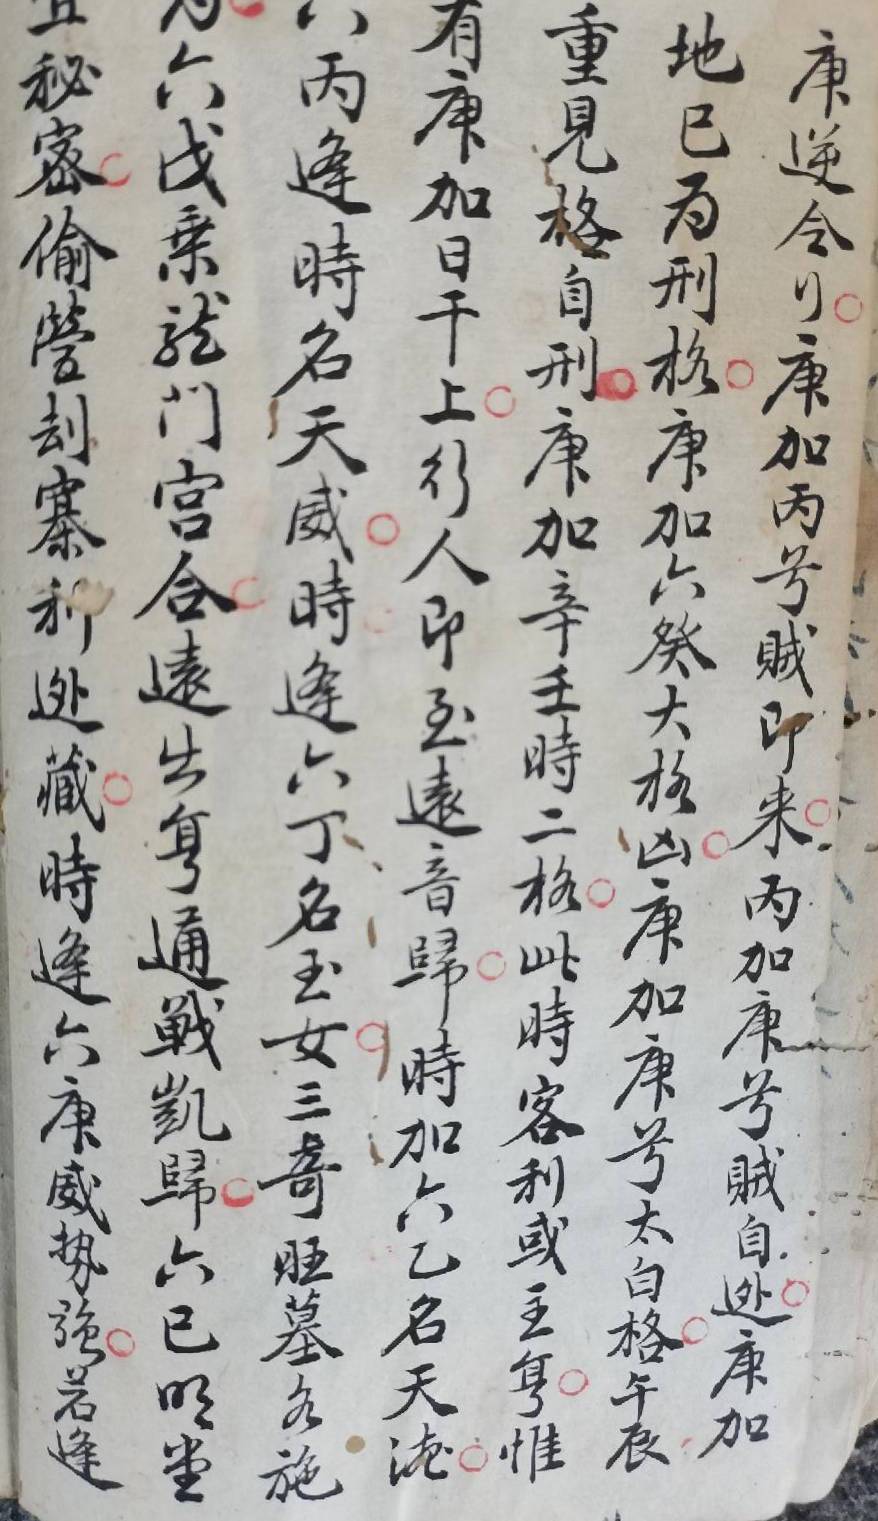 庚逆令刂庚加丙兮賊即来丙加庚兮賊自迯庚加
地已为刑格庚加六癸大格凶庚加庚兮太白格午辰
重見格自刑庚加辛壬時二格此時客利或主身惟
有庚加日干上行人即至遠音歸時加六乙名天德
六丙逢時名天威時逢六丁名玉女三奇旺墓各施
为六戊乗龍门宫合遠出身通戰凱歸六已明堂
宜秘密偷營刦寨利迯藏時逢六庚威势强若逢